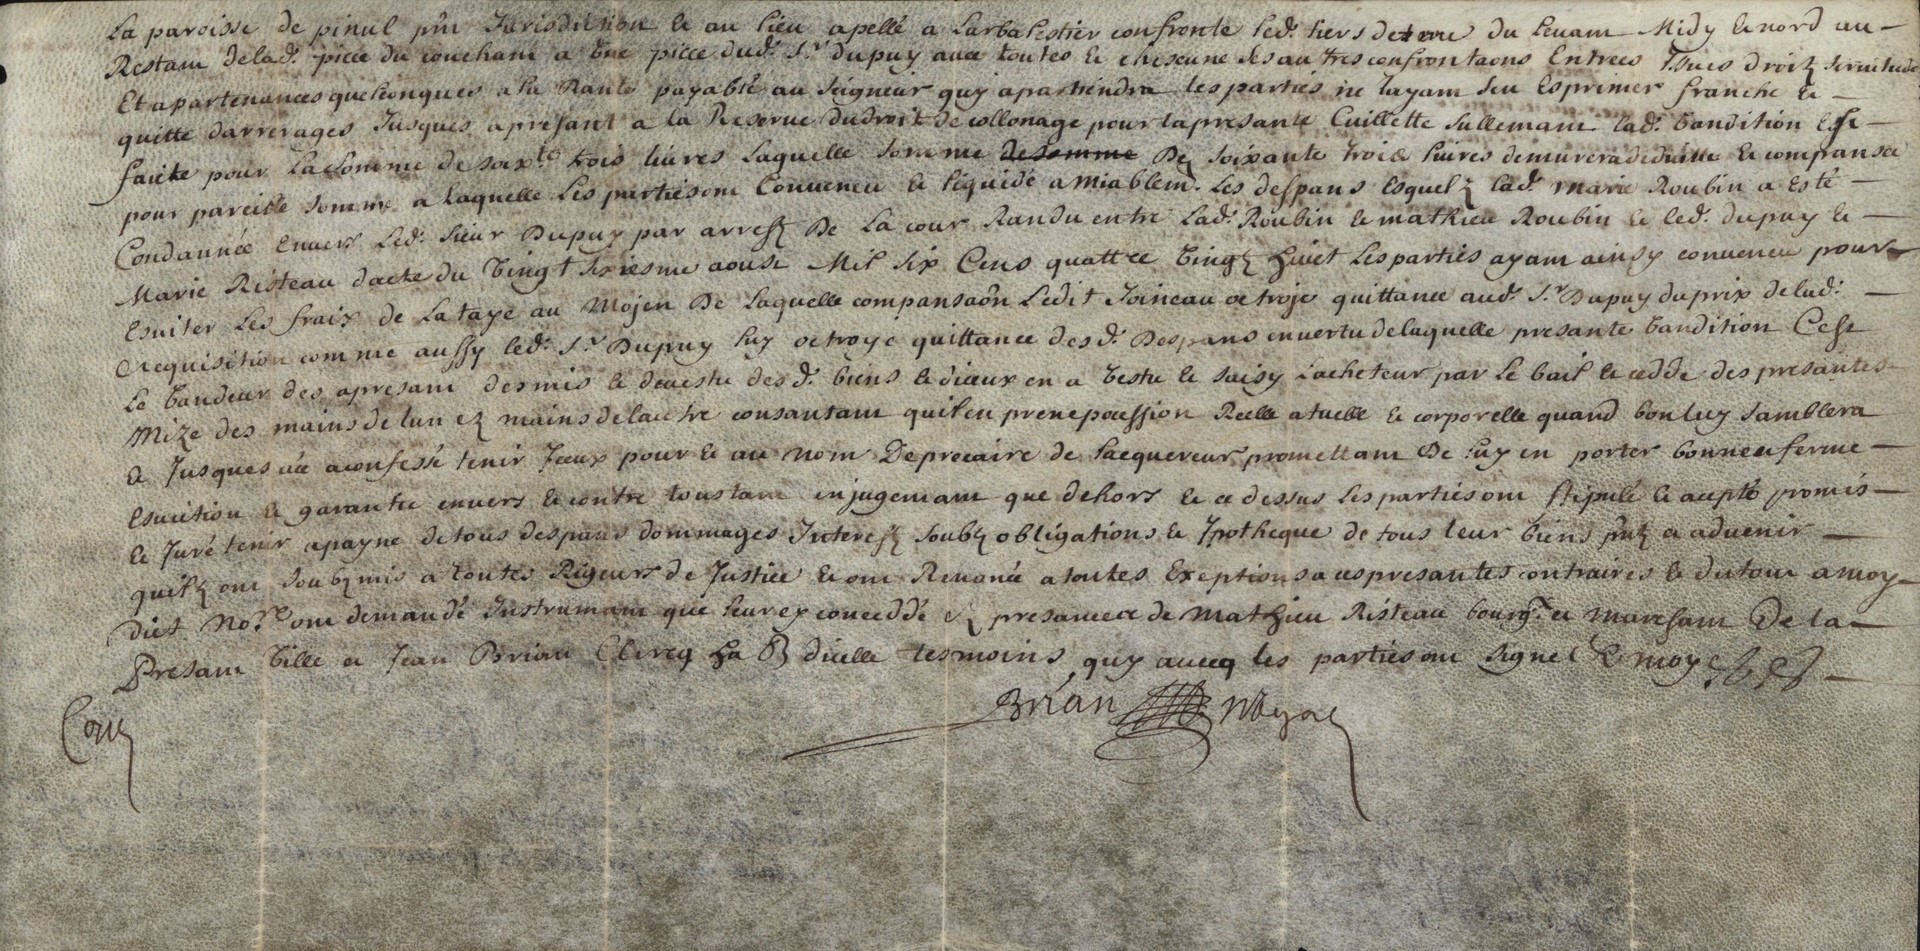 La paroisse de pinul pñt Jurisdiction & au lieu apellé a Larbalestier confronte led. tiers de terre du Leuant Midy & nord au —
Restant de lad. piece du couchant a Vne piece dud. Sr. dupuy auec toutes & chescune ses autres confrontaons Entrees Issues droitz seruitude
Et apartenances quelconques a la Rante payable au seigneur quy apartiendra les parties ne layant seu Exprimer franche & —
quitte darrerages Jusques apresant a la Reserue dudroit de collonage pour la presante Cuillette sullemant lad. Vandition Est —
faicte pour La Somme de soixte trois liures Laquelle somme de somme De soixante trois liures demurera deduitte & compansée
pour pareille somme a laquelle Les parties ont Conuenu & liquidé amiablemt. Les despans Esquelz lad. marie Roubin a Esté —
Condannée Enuers Led. sieur Dupuy par arrest De La cour Randu entre Lad. Roubin & mathieu Roubin & led. dupuy & —
Marie Risteau dacte du Vingt sixiesme aoust Mil six Cens quattre Vingtz huict Les parties ayant ainsy conuenu pour —
Esuiter Les fraix de La taxe au Mojen De Laquelle compansaõn Ledit Joineau octroje quittance aud. Sr. Dupuy du prix de lad. —
Requisition comme aussy led. Sr. Dupuy luy octroye quittance des d. Despans en vertu de laquelle presante Vandition Cest
Le Vandeur des apresant desmis & deuestu des d. biens & diceux en a Vestu & saisy Lacheteur par Le bail & cedde des presantes
Mize des mains de lun ez mains de lautre consantant quil en prene pocession Reelle atuelle & corporelle quand bon luy samblera
& Jusques a ce a confessé tenir Jceux pour & au nom De precaire de Lacquereur promettant De luy en porter bonne & ferme —
Esuiction & garantie enuers & contre tous tant en jugemant que dehors & ce dessus Les parties ont stipulé & acepté promis —
& Juré tenir a payne de tous despans dommages Interestz soubz obligations & Ipotheque de tous leur biens pñtz & aduenir —
quilz ont soubzmis a toutes Rigeurs de Justice & ont Renoncé a toutes Exeptions a ces presantes contraires & du tout a moy —
dict Nore. ont demandé Instrumant que leur ey conceddé Ez presance de Mathieu Risteau bourgs. & marchant De la —
Presant Ville & Jean Brian Clercq ha B dicelle tesmoins quy auecq les parties ont signe & moy
Brian